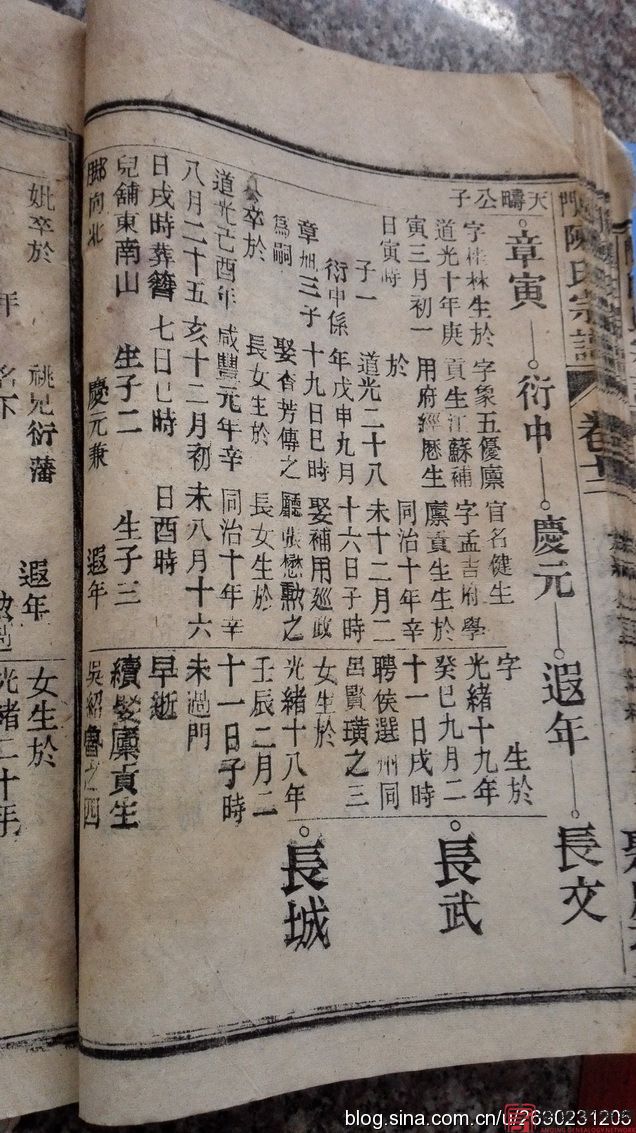 門陳氏宗譜 卷十二
天疇公子
章寅 衍中 慶元 遐年 長文
字桂林生於
道光十年庚
寅三月初一
日寅時
子一
衍中係
章州三子
為嗣
卒於
道光己酉年
八月二十五
日戌時葬簪
兒舖東南山
腳向北
字象五優廩
貢生江蘇補
用府經歷生
於
道光二十八
年戊申九月
十九日巳時
娶香芳傳之
長女生於
咸豐元年辛
亥十二月初
七日巳時
生子二
慶元兼
官名健生
字孟吉府學
廩貢生生於
同治十年辛
未十二月二
十六日子時
娶補用巡政
廳張懋勲之
長女生於
同治十年辛
未八月十六
日酉時
生子三
遐年
字 生於
光緒十九年
癸巳九月二
十一日戌時
聘侯選州同
呂賢璜之三
女生於
光緒十八年
壬辰二月二
十一日子時
未過門
早逝
續娶廩貢生
吳紹魯之四
長武
長城
妣卒於
年
祧兄衍藩
名下
遐年
女生於
光緒二十年
blog.sina.com.cn/u/2630231205